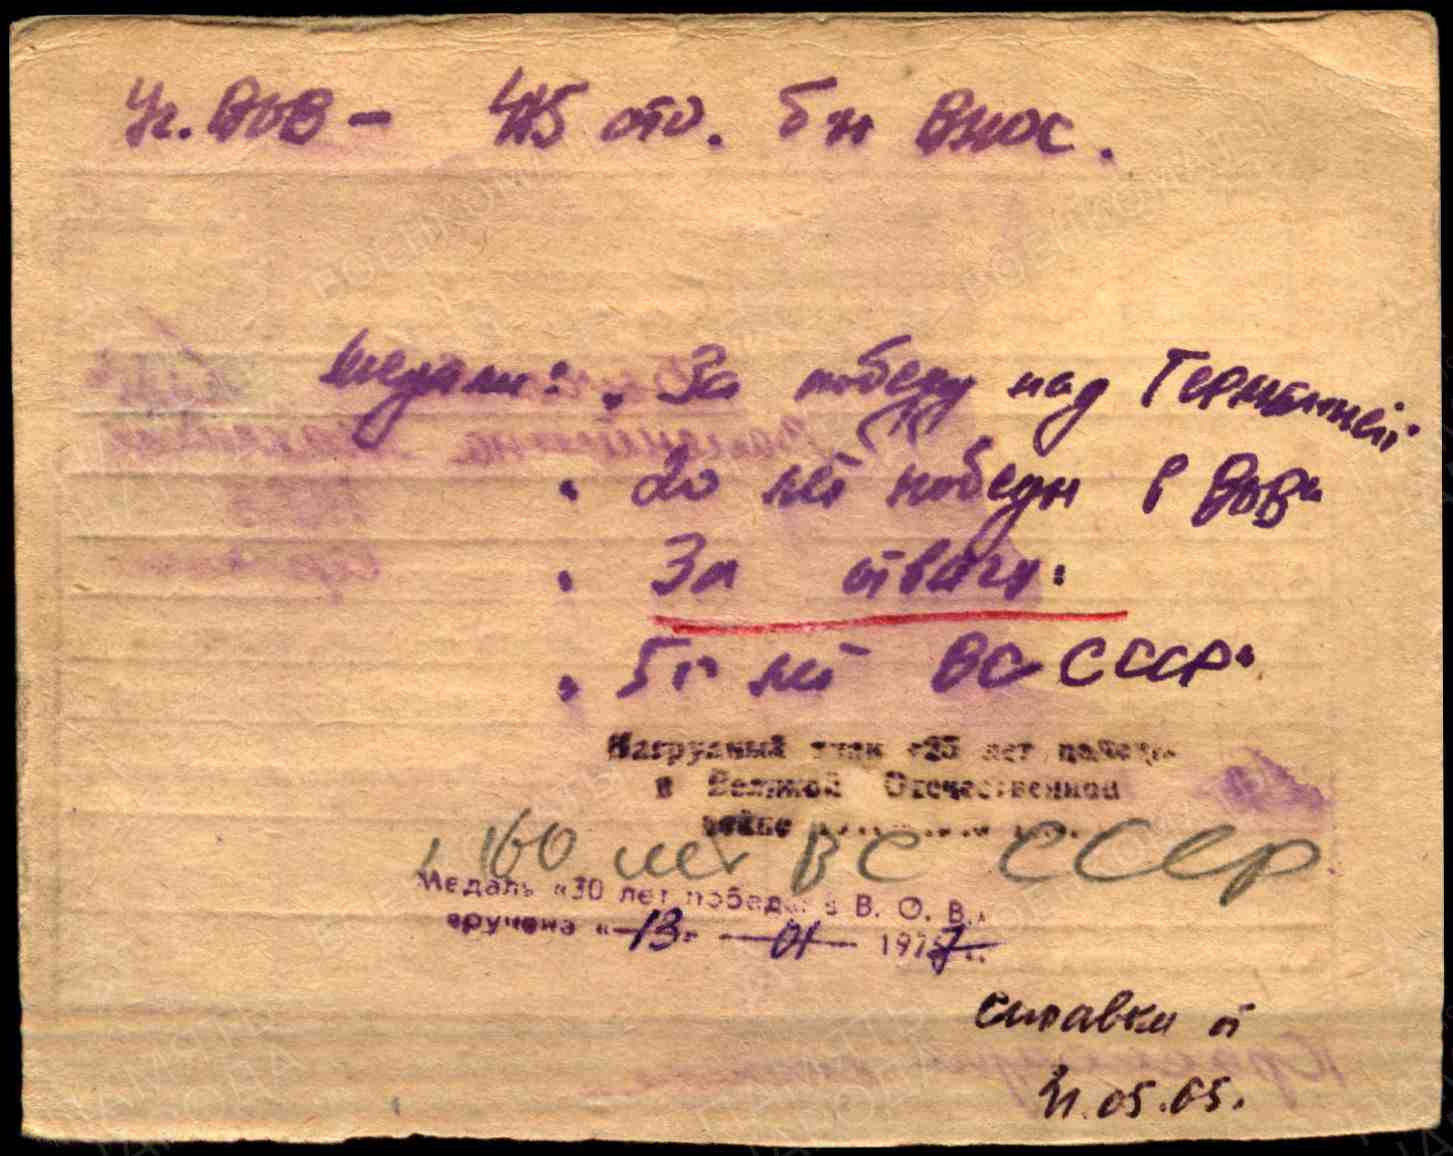 Уч. ВОВ – 415 отд. бн ВНОС.
медали: „За победу над Германией"
„20 лет победы в ВОВ"
„За отвагу"
„50 лет ВС СССР"
Нагрудный знак «25 лет победы
в Великой Отечественной
войне
„60 лет ВС СССР
Медаль «30 лет победы в В. О. В.»
вручена «13» 01 1977 г.
справка от
05.65.